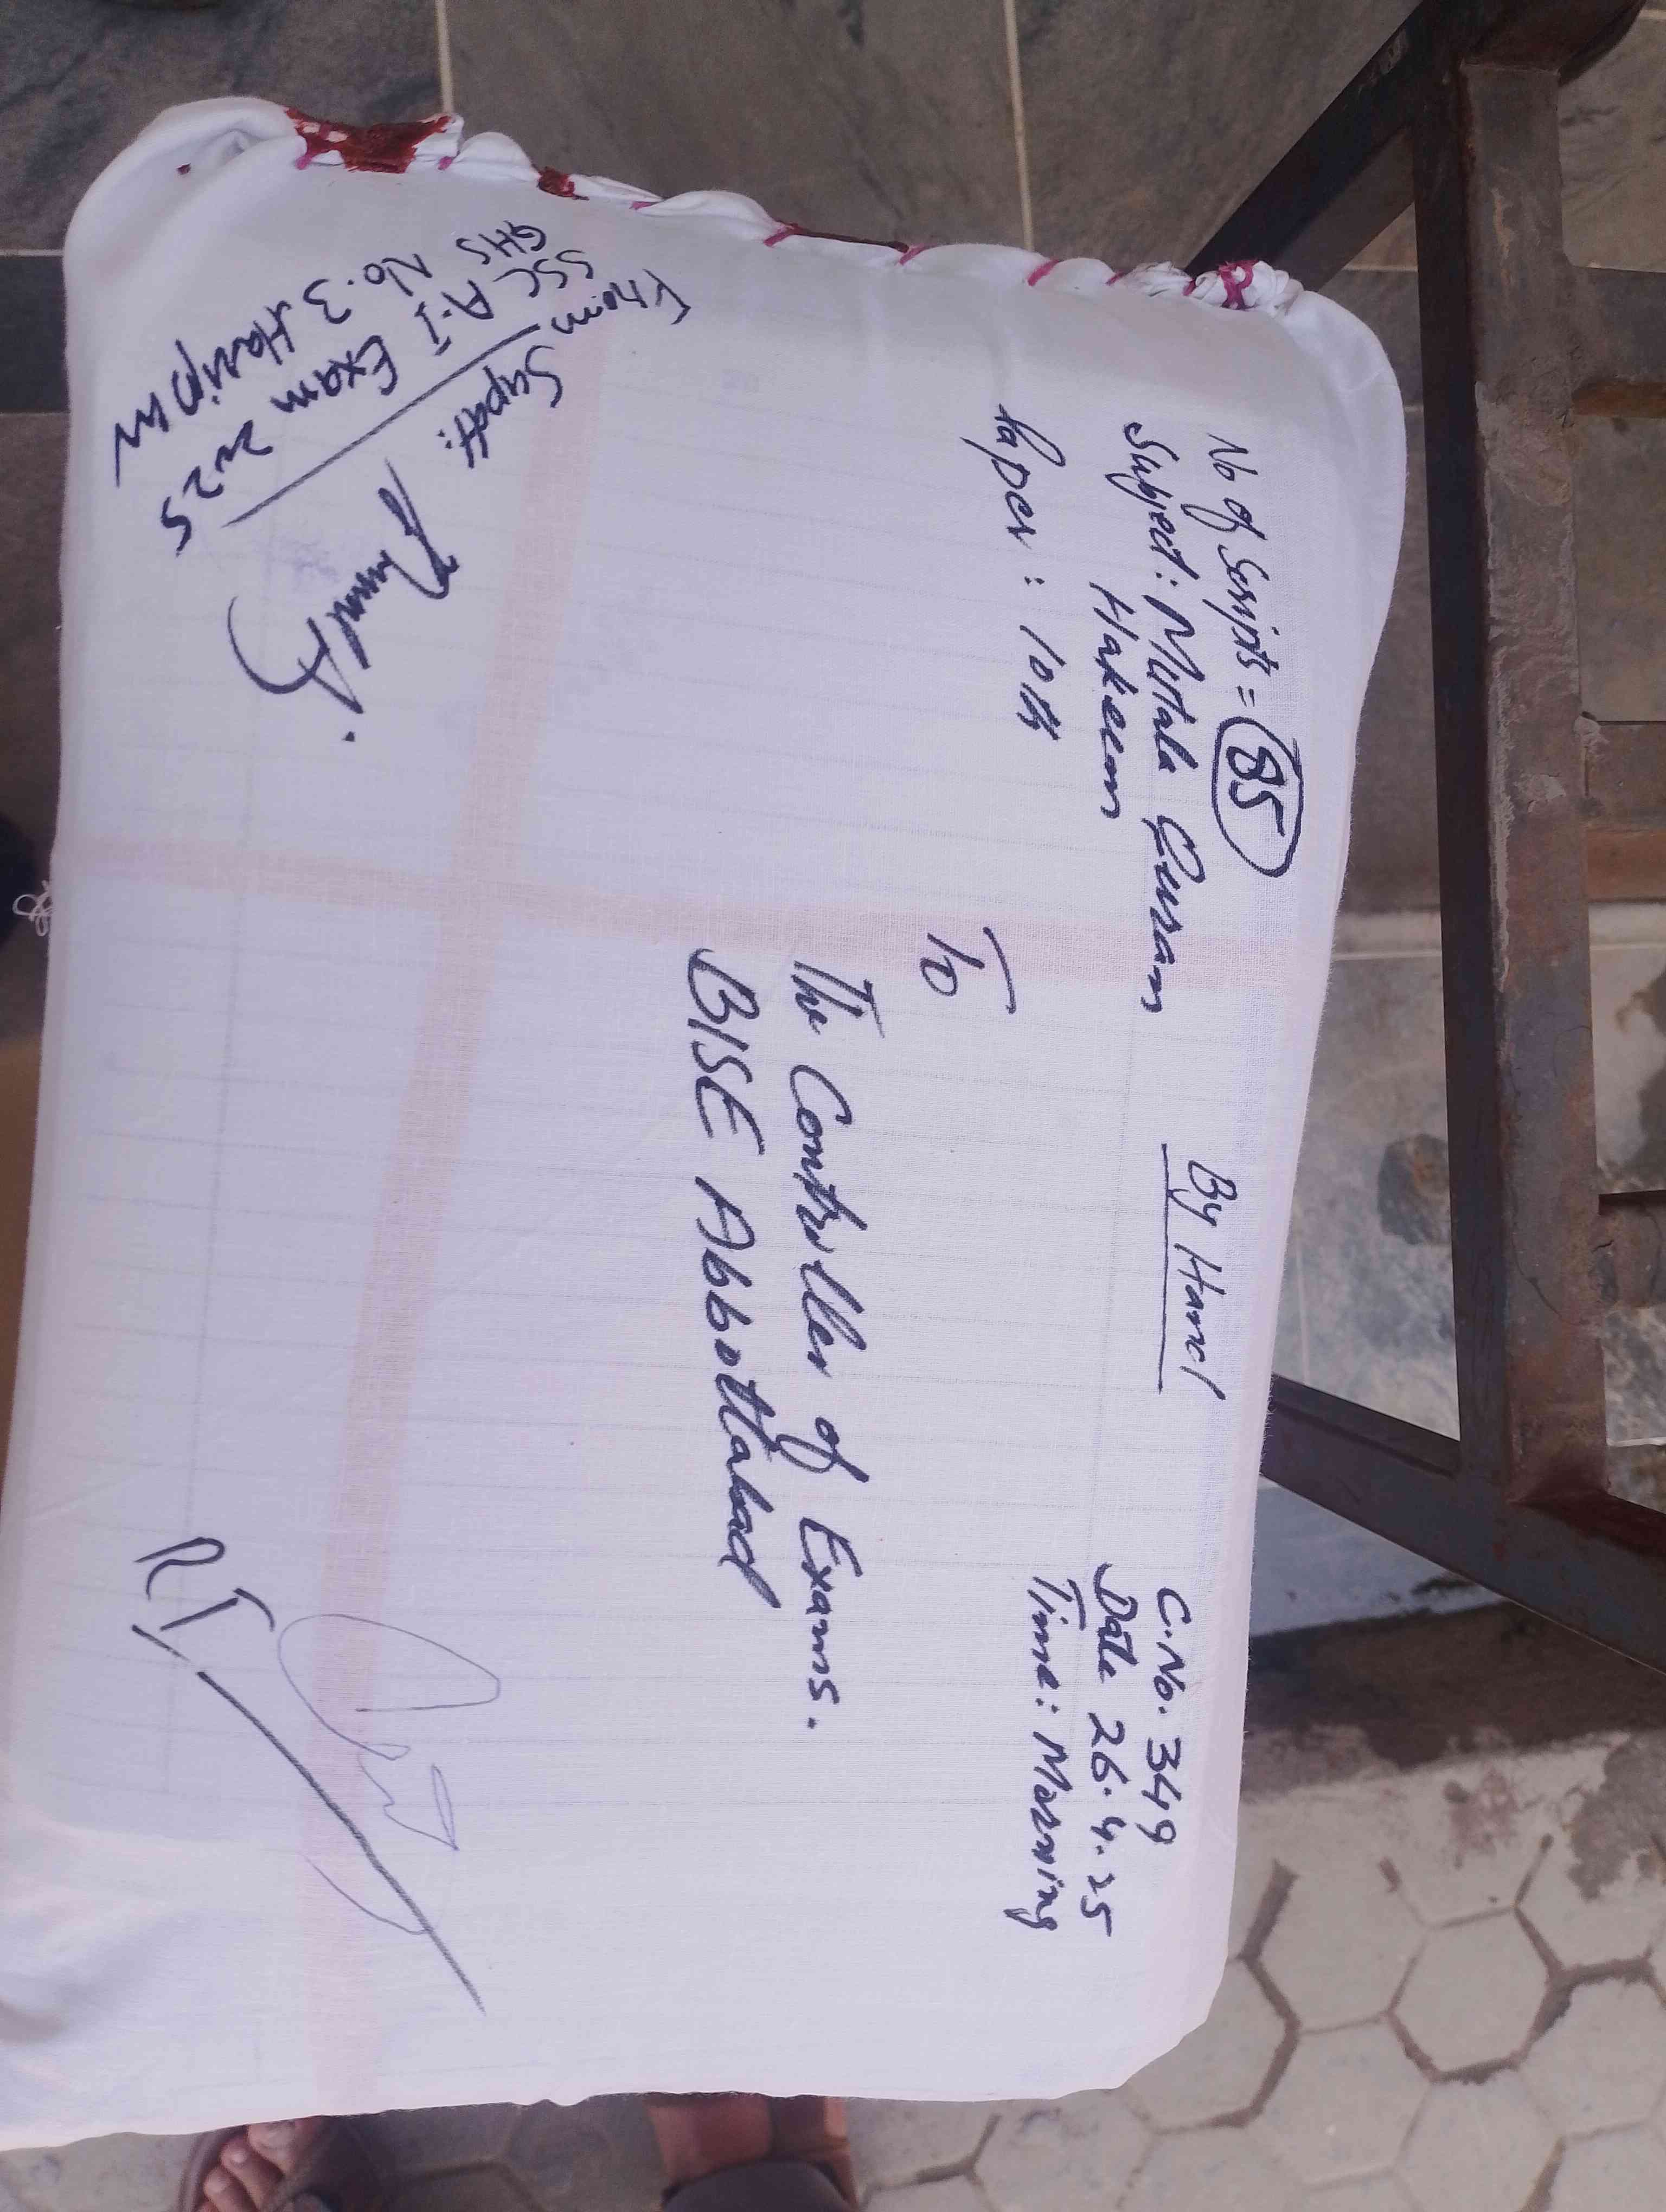 No of Scripts = 85
Subject: Mutala Quran
Hakeem
Paper: 10th
By Hand
C.No. 349
Date 26.4.25
Time: Morning
To
The Controller of Exams.
BISE Abbottabad
From Supdt:
SSC A-I Exam 2025
GHS No. 3 Haripur